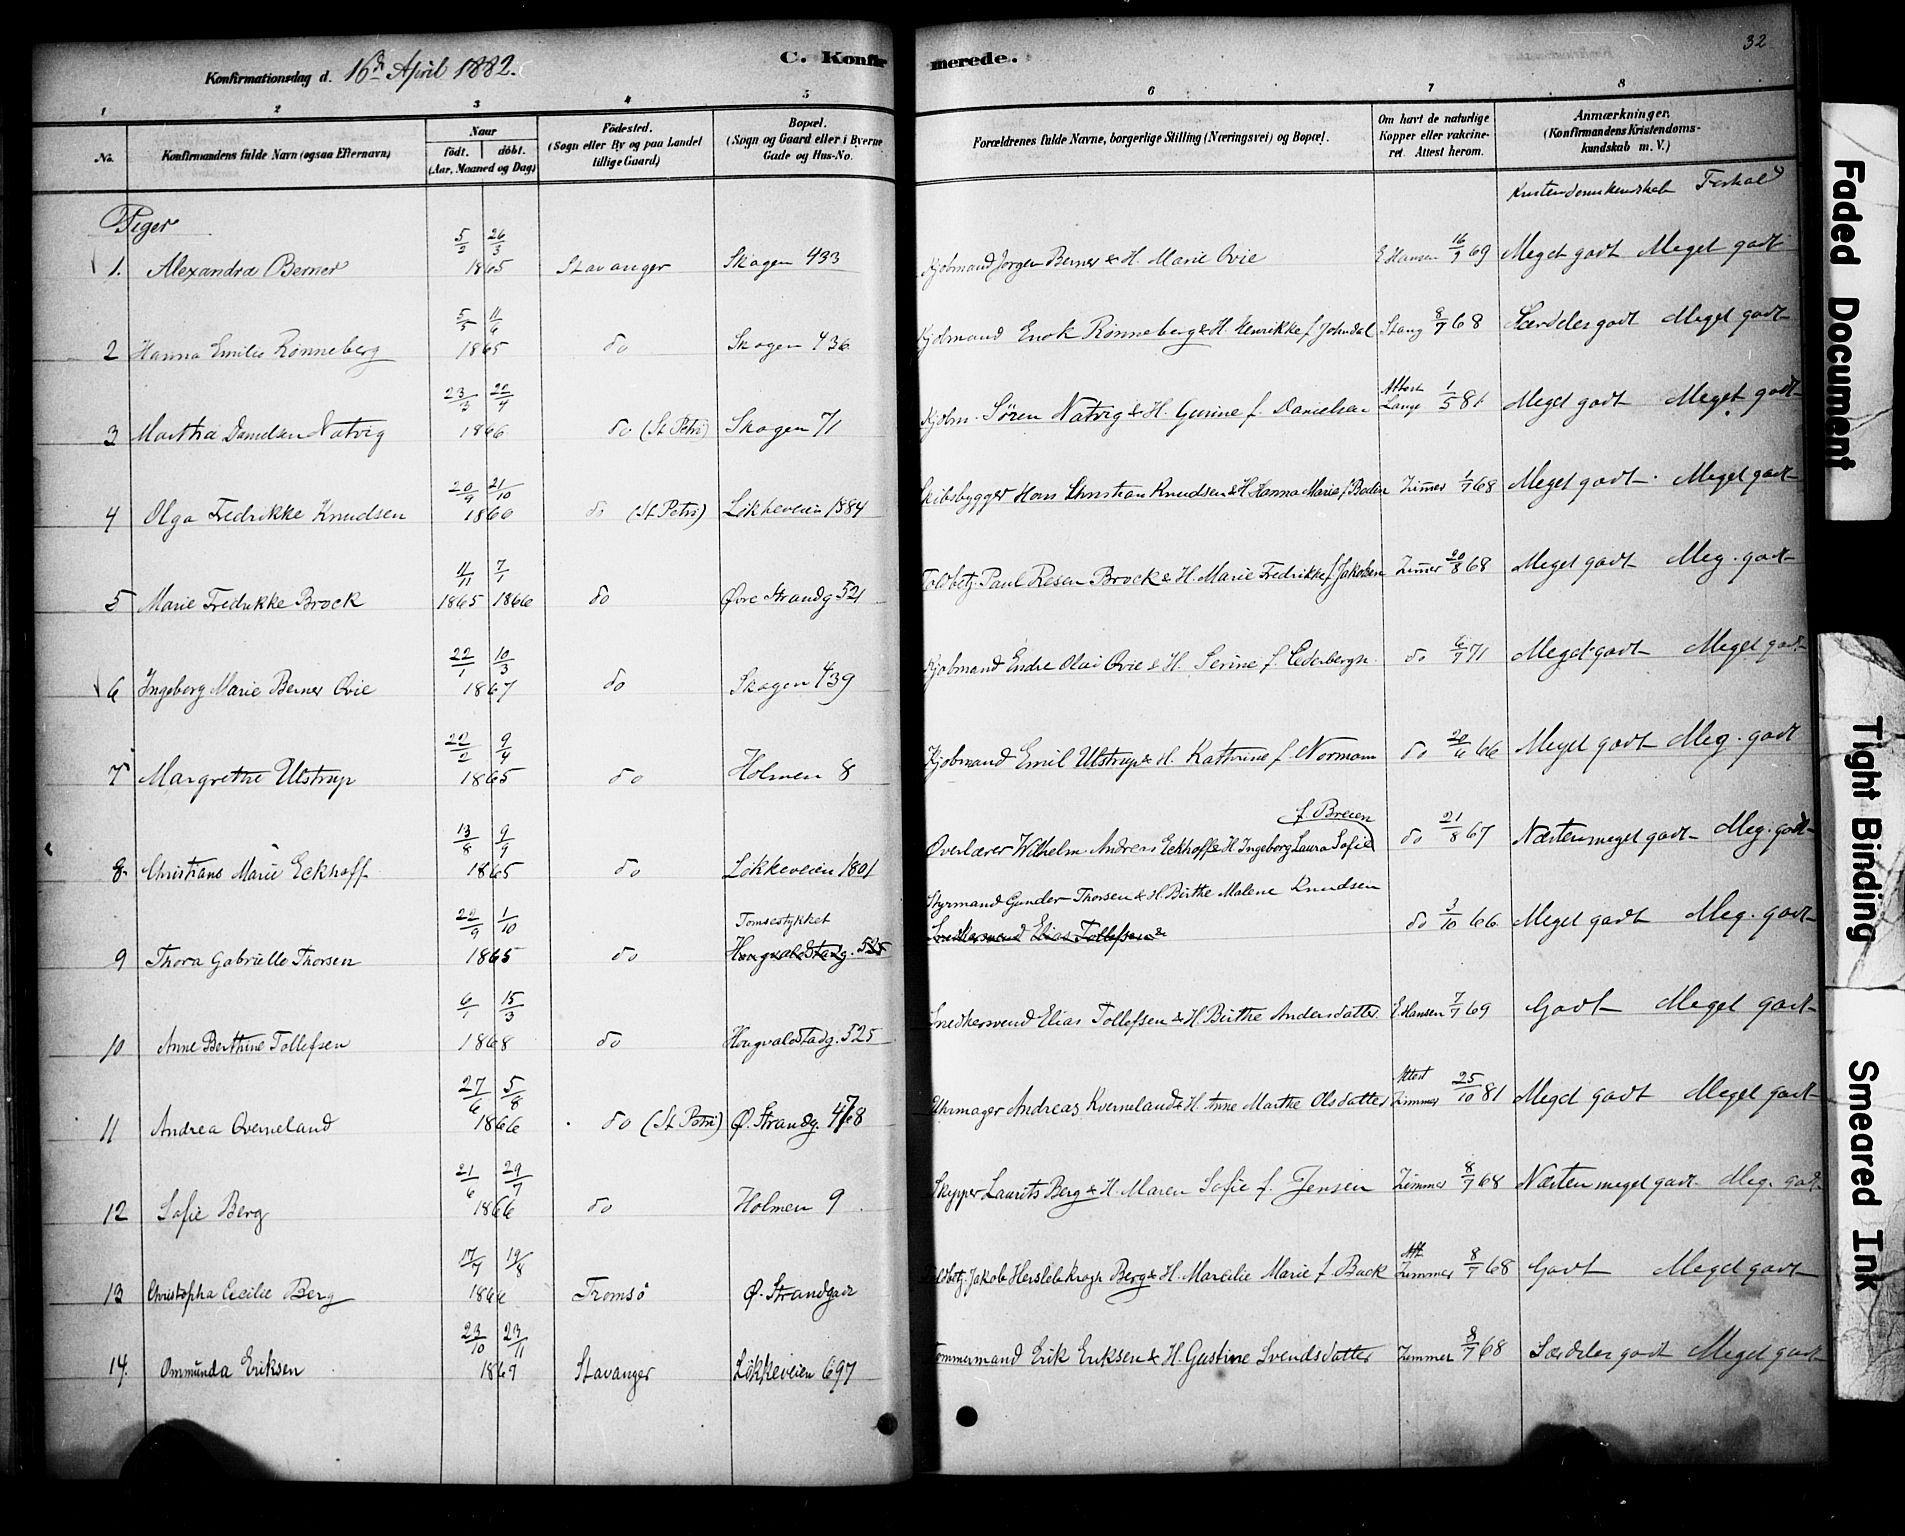 32
Konfirmationsdag d. 16de April 1882.
C. Konfirmerede.
1 2 3 4 5 6 7 8
No. Konfirmandens fulde Navn (ogsaa Efternavn)
Naar født. døbt. (Aar, Maaned og Dag)
Fødested. (Sogn eller By og paa Landet tillige Gaard)
Bopæl. (Sogn og Gaard eller i Byerne Gade og Hus-No.
Forældrenes fulde Navne, borgerlige Stilling (Næringsvei) og Bopæl.
Om havt de naturlige Kopper eller vakcineret. Attest herom.
Anmærkninger. (Konfirmandens Kristendomskundskab m. V.)
Kristendomskundskab Forhold
Piger
1. Alexandra Berner 5/2 26/3 1865 Stavanger Skagen 433 Kjøbmand Jørgen Berner & H. Marie Qvie E Hansen 16/9 69 Meget godt Meget godt
2 Hanna Emilie Rønneberg 5/5 11/6 1865 do Skagen 436 Kjøbmand Enok Rønneberg & H. Henrikke f. Johndal Stang 8/7 68 Særdeles godt Meget godt
3 Martha Danielsen Natvig 23/3 20/4 1866 do (St Petri) Skagen 71 Kjøbm. Søren Natvig & H. Gurine f. Danielsen Attest Lange 1/5 81 Meget godt Meget godt
4 Olga Fredrikke Knudsen 20/9 21/10 1866 do (St Petri) Løkkeveien 1884 Skibsbygger Hans Christian Knudsen & H. Hanna Marie f. Boden Zimmer 1/7 68 Meget godt. Meget godt
5 Marie Fredrikke Brock 11/11 1865 7/1 1866 do Øvre Strandg 521 Toldbetj. Paul Resen Brock & H. Marie Fredrikke f. Jakobsen Zimmer 20/8 68 Meget godt Meg. godt
6 Ingeborg Marie Berner Qvie 22/1 10/3 1867 do Skagen 439 Kjøbmand Endre Olai Qvie & H. Serine f. Cederbergh do 6/7 71 Meget godt Meget godt
7 Margrethe Ulstrup 22/2 9/4 1865 do Holmen 8 Kjøbmand Emil Ulstrup & H. Kathrine f. Normann do 20/6 66 Meget godt Meg. godt
8 Christiane Marie Eckhoff 13/8 9/9 1865 do Løkkeveien 1801 Overlærer Wilhelm Andreas Eckhoff & H Ingeborg Laura Sofie f. Breien do 21/8 67 Næsten meget godt Meg. godt
9 Thora Gabrielle Thorsen 22/9 1/10 1865 do Tomsestykket Hougvaldstadg. 525 Styrmand Gunder Thorsen & H. Birthe Malene Knudsen
Snedkersvend Elias Tollefsen & do 3/10 66 Meget godt Meg. godt
10 Anne Berthine Tollefsen 6/1 15/3 1868 do Hougvaldstadg. 525 Snedkersvend Elias Tollefsen & H. Birthe Andersdatter E Hansen 7/7 69 Godt Meget godt
11 Andrea Qverneland 27/6 5/8 1866 do (St Petri) Ø. Strandg. 478 Uhrmager Andreas Kverneland & H. Anne Marthe Olsdatter Attest Zimmer 25/10 81 Meget godt Meget godt
12 Sofie Berg 21/6 29/7 1866 do Holmen 9 Skypper Laurits Berg & H. Maren Sofie f. Jensen Zimmer 8/7 68 Næsten meget godt Meg. godt
13 Christopha Cecilie Berg 17/7 19/8 1866 Tromsø Ø. Strandgade Toldbetj. Jakob Hersleb Krogh Berg & H. Marcilie Marie f. Back Att Zimmer 8/7 68 Godt Meget godt
14. Ommunda Eriksen 23/10 23/11 1867 Stavanger Løkkeveien 697 Tømmermand Erik Eriksen & H. Gustine Svendsdatter Zimmer 8/7 68 Særdeles godt Meget godt
Faded Document
Tight Binding
Smeared Ink